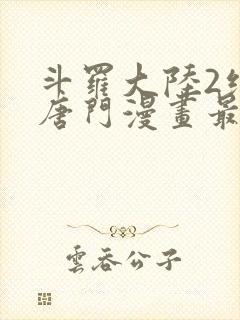 斗羅大陸2
唐門漫畫最
雲吞公子